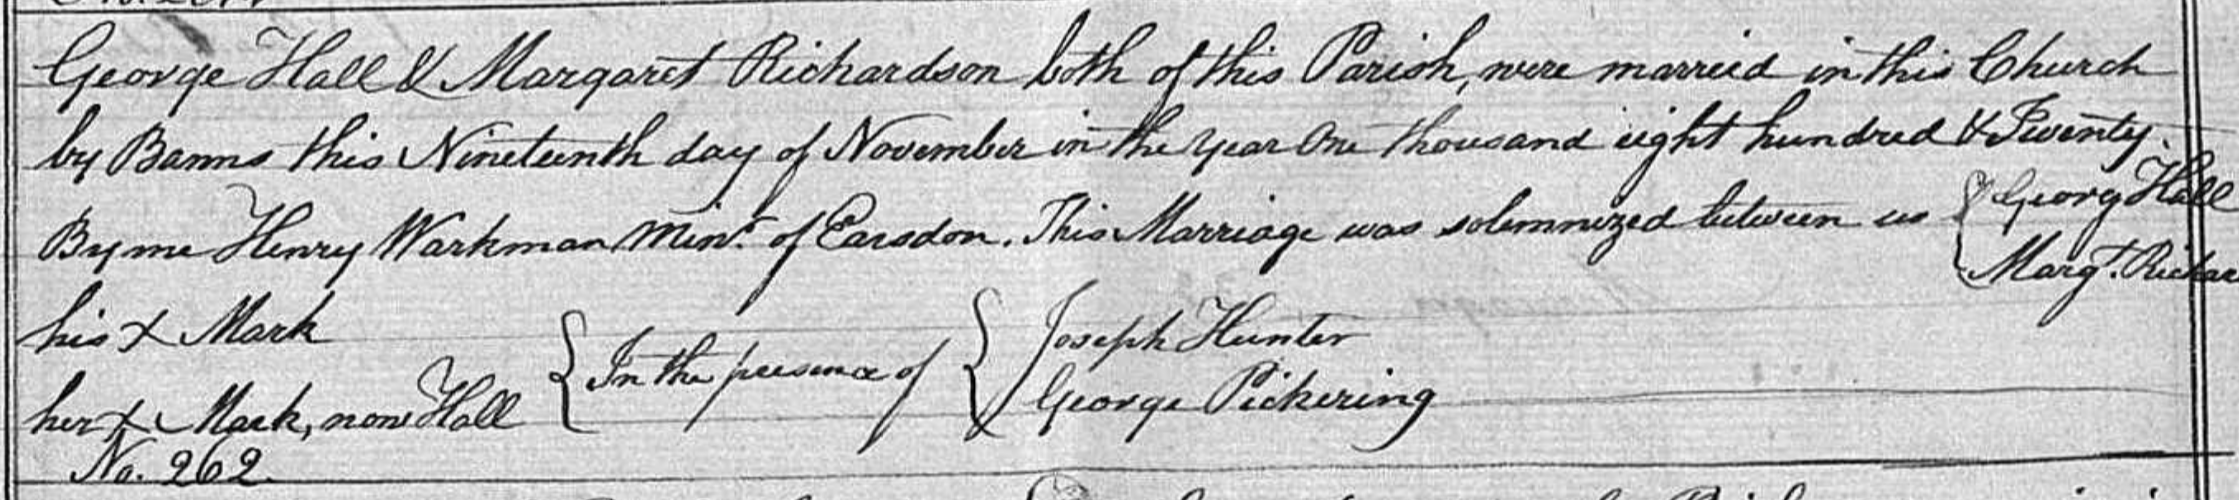 George Hall & Margaret Richardson both of this Parish, were marreid in this Church
by Banns this Nineteenth day of November in the Year One thousand eight hundred & Twenty.
By me Henry Warkman Minr. of Earsdon. This Marriage was solemnized between us { Georg Hall
Margt. Richar
his X Mark
her X Mark, now Hall { In the presence of { Joseph Hunter
George Pickering
No. 262.